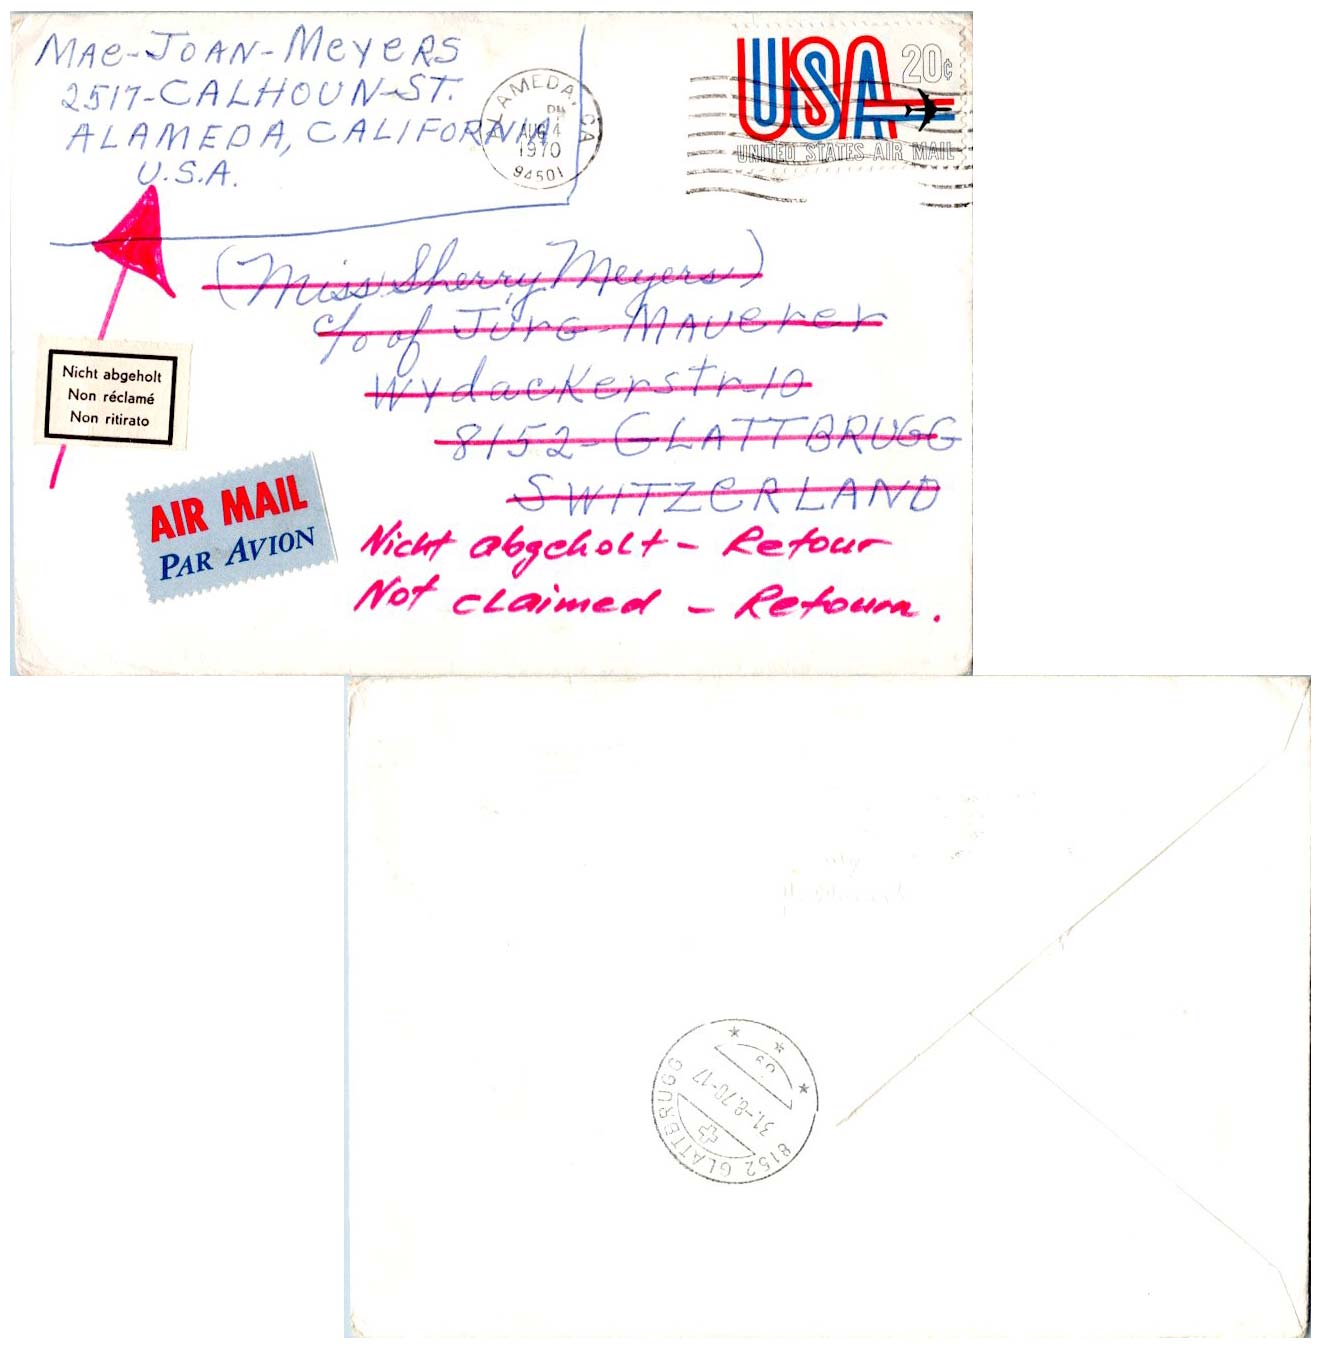 Mae-Joan-Meyers
2517-CALHOUN-ST.
ALAMEDA, CALIFORNIA
U.S.A.
ALAMEDA, CA
PM
AUG 4
1970
94501
USA 20c
UNITED STATES AIR MAIL
(Miss Sherry Meyers)
c/o of Jürg Mauerer
Wydackerstr-10
8152-GLATTBRUGG
SWITZERLAND
Nicht abgeholt
Non réclamé
Non ritirato
AIR MAIL
PAR AVION
Nicht abgeholt - Retour
Not claimed - Retourn.
31.-8.70-17
8152 GLATTBRUGG